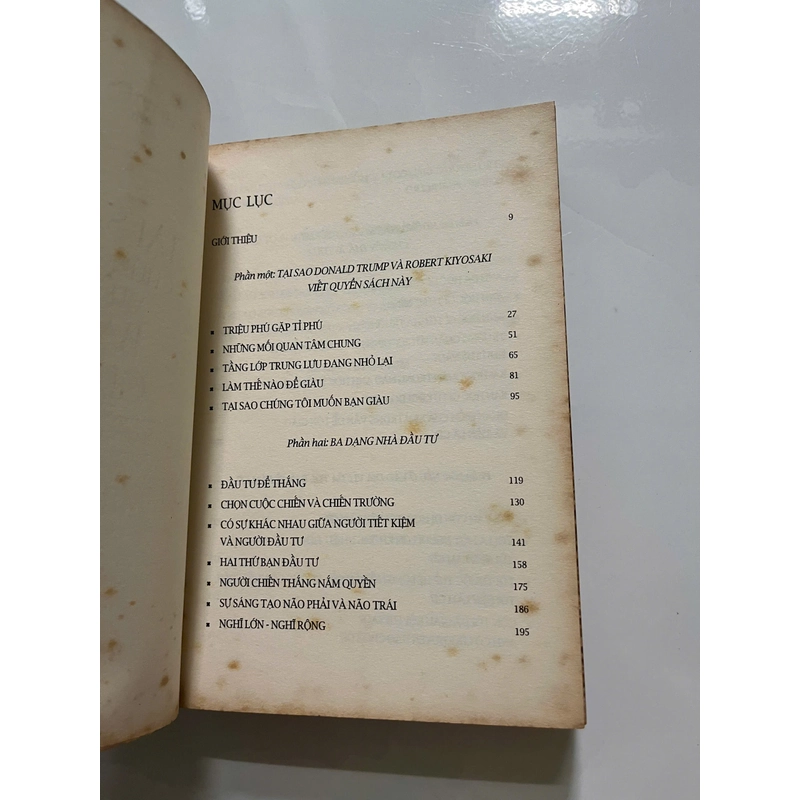 MỤC LỤC
GIỚI THIỆU 9
Phần một: TẠI SAO DONALD TRUMP VÀ ROBERT KIYOSAKI
VIẾT QUYỂN SÁCH NÀY
▪ TRIỆU PHÚ GẶP TỈ PHÚ 27
▪ NHỮNG MỐI QUAN TÂM CHUNG 51
▪ TẦNG LỚP TRUNG LƯU ĐANG NHỎ LẠI 65
▪ LÀM THẾ NÀO ĐỂ GIÀU 81
▪ TẠI SAO CHÚNG TÔI MUỐN BẠN GIÀU 95
Phần hai: BA DẠNG NHÀ ĐẦU TƯ
▪ ĐẦU TƯ ĐỂ THẮNG 119
▪ CHỌN CUỘC CHIẾN VÀ CHIẾN TRƯỜNG 130
▪ CÓ SỰ KHÁC NHAU GIỮA NGƯỜI TIẾT KIỆM
VÀ NGƯỜI ĐẦU TƯ 141
▪ HAI THỨ BẠN ĐẦU TƯ 158
▪ NGƯỜI CHIẾN THẮNG NẮM QUYỀN 175
▪ SỰ SÁNG TẠO NÃO PHẢI VÀ NÃO TRÁI 186
▪ NGHĨ LỚN - NGHĨ RỘNG 195